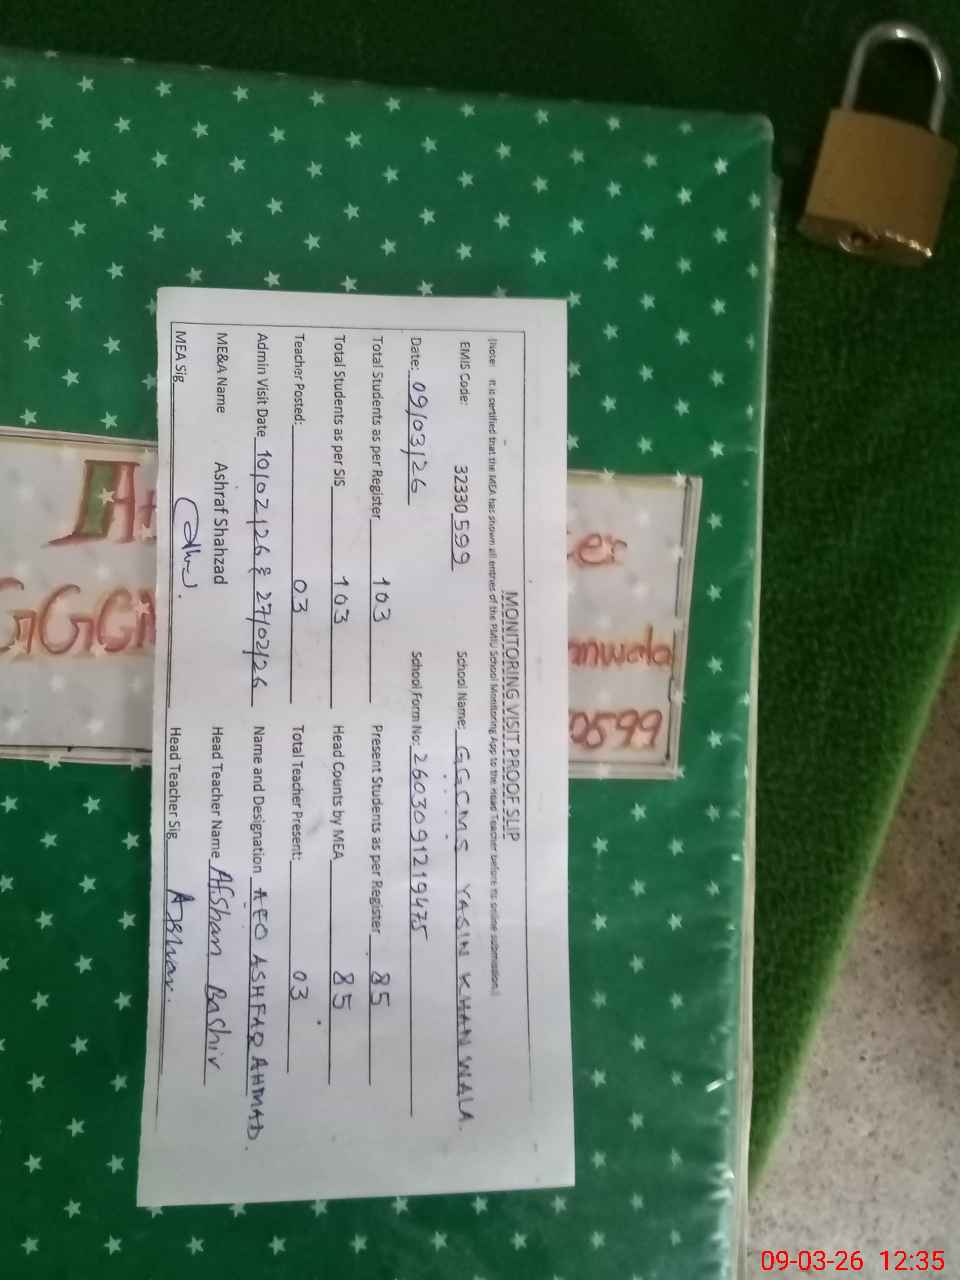 MONITORING VISIT PROOF SLIP
(Note: It is certified that the MEA has shown all entries of the PMIU School Monitoring App to the Head Teacher before its online submission.)
EMIS Code: 32330599 School Name: GGCMS YASIN KHAN WALA.
Date: 09/03/26 School Form No: 260309121947.5
Total Students as per Register 103 Present Students as per Register 85
Total Students as per SIS 103 Head Counts by MEA 85
Teacher Posted: 03 Total Teacher Present: 03
Admin Visit Date 10/02/26 & 27/02/26 Name and Designation AEO ASHFAQ AHMAD.
ME&A Name Ashraf Shahzad Head Teacher Name Afshan Bashir
MEA Sig Head Teacher Sig
09-03-26 12:35